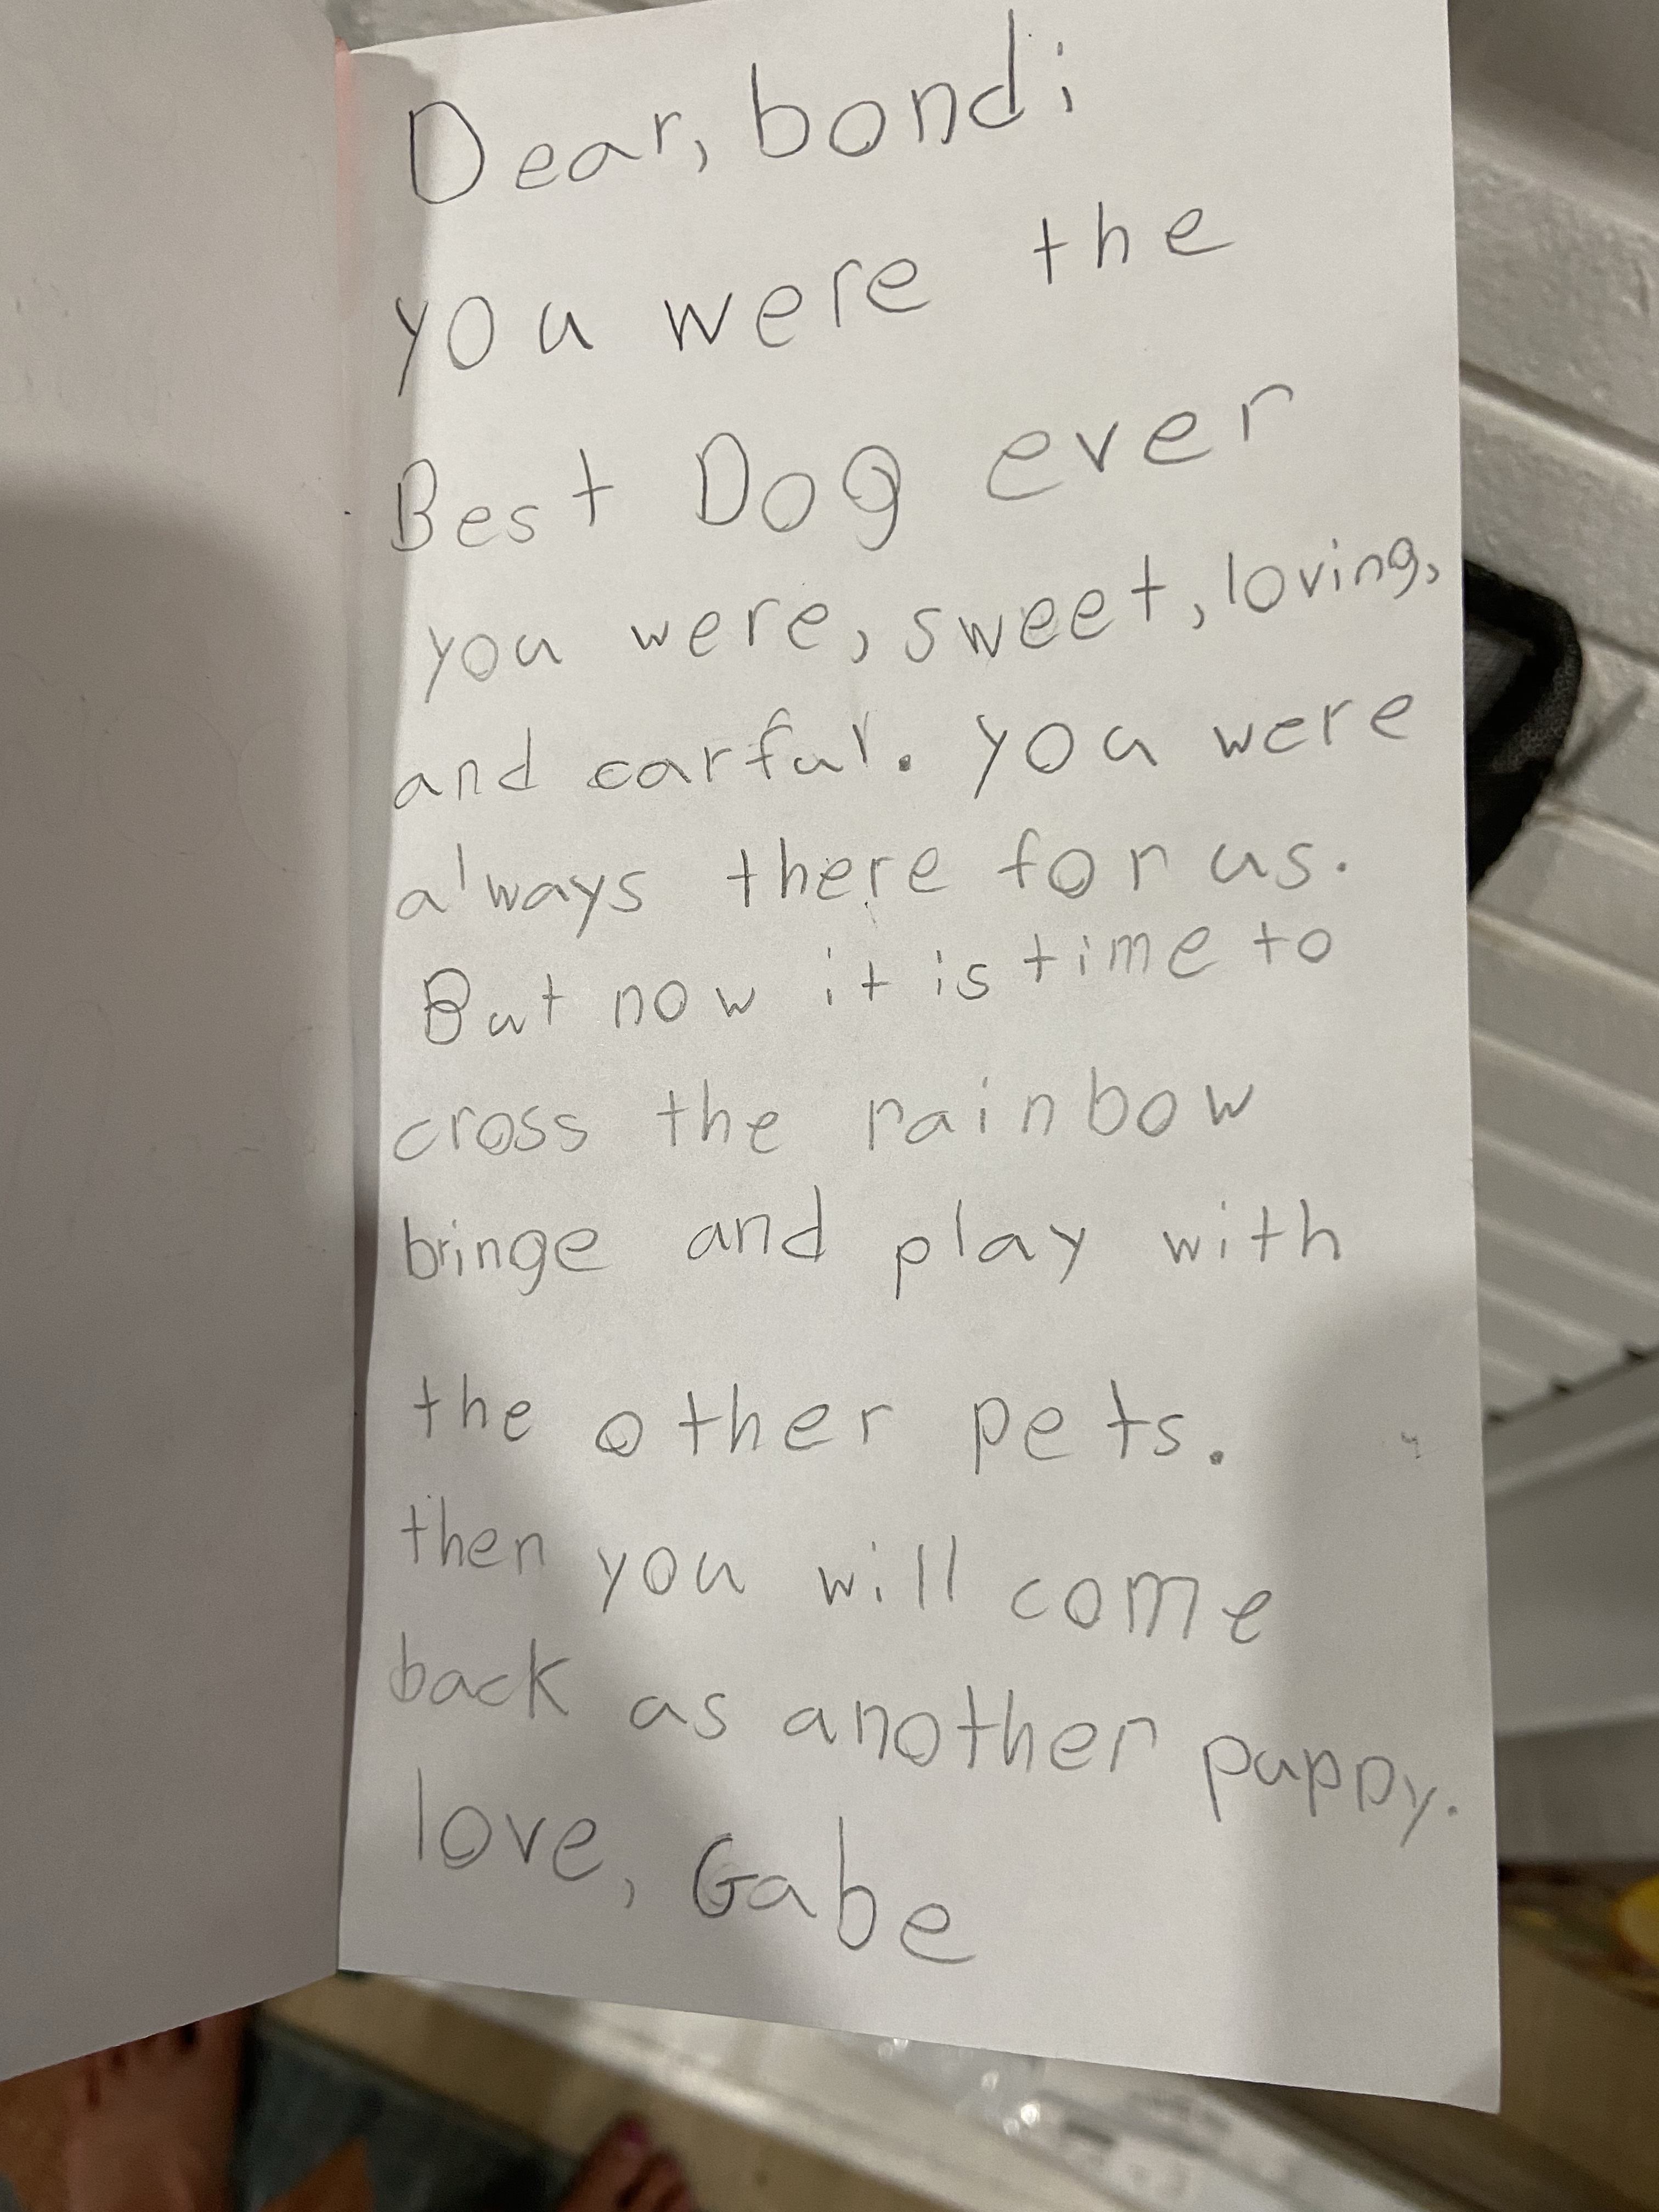 Dear, bondi
you were the
Best Dog ever
you were, sweet, loving,
and carful. you were
always there for us.
But now it is time to
cross the rainbow
bringe and play with
the other pets.
then you will come
back as another puppy.
love, Gabe